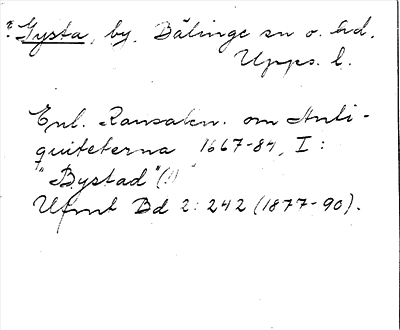 * Gysta, by, Bälinge sn o. hd.
Upps. l.
Enl. Ransakn. om Anti-
quiteterna 1667-84, I:
"Bystad" (!)
Ufmt Bd 2: 242 (1877-90).